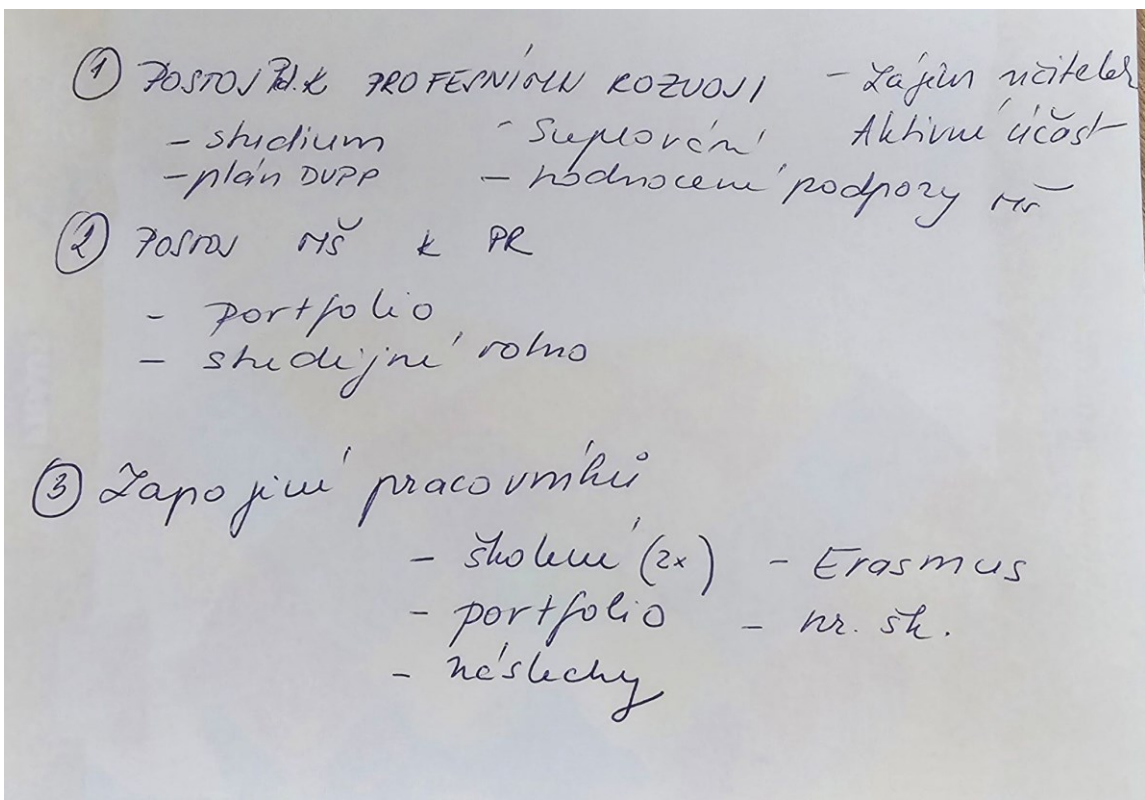 ① POSTOJ Pd. K PROFESNÍMU ROZVOJI - Zájem učitelek
- studium - Suplování Aktivní účast
- plán DVPP - hodnocení podpory MŠ
② POSTOJ MŠ K PR
- portfolio
- studijní volno
③ Zapojení pracovníků
- školení (2x) - Erasmus
- portfolio - nr. šk.
- náslechy